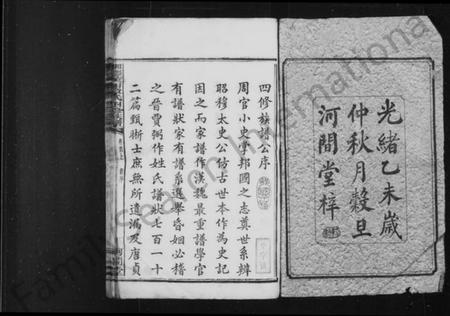 光緒乙未歲
仲秋月穀旦
河間堂梓
四修族譜公序
周官小史掌邦國之志奠世系辨
昭穆太史公仿古世本作為史記
因之而家譜作漢魏最重譜學官
有譜狀家有譜系選舉昏姻必稽
之晉賈弼作姓氏譜狀七百一十
二篇甄析士庶無所遺漏及唐貞
Family Search International